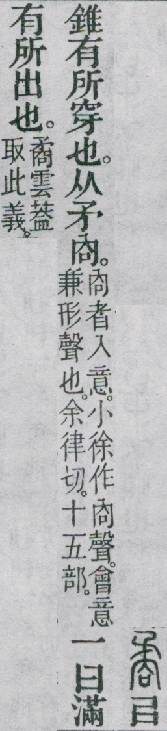 矞㠯
錐有所穿也。从矛㕯。㕯者入意。小徐作㕯聲。會意
兼形聲也。余律切。十五部。一曰滿
有所出也。矞雲葢
取此義。